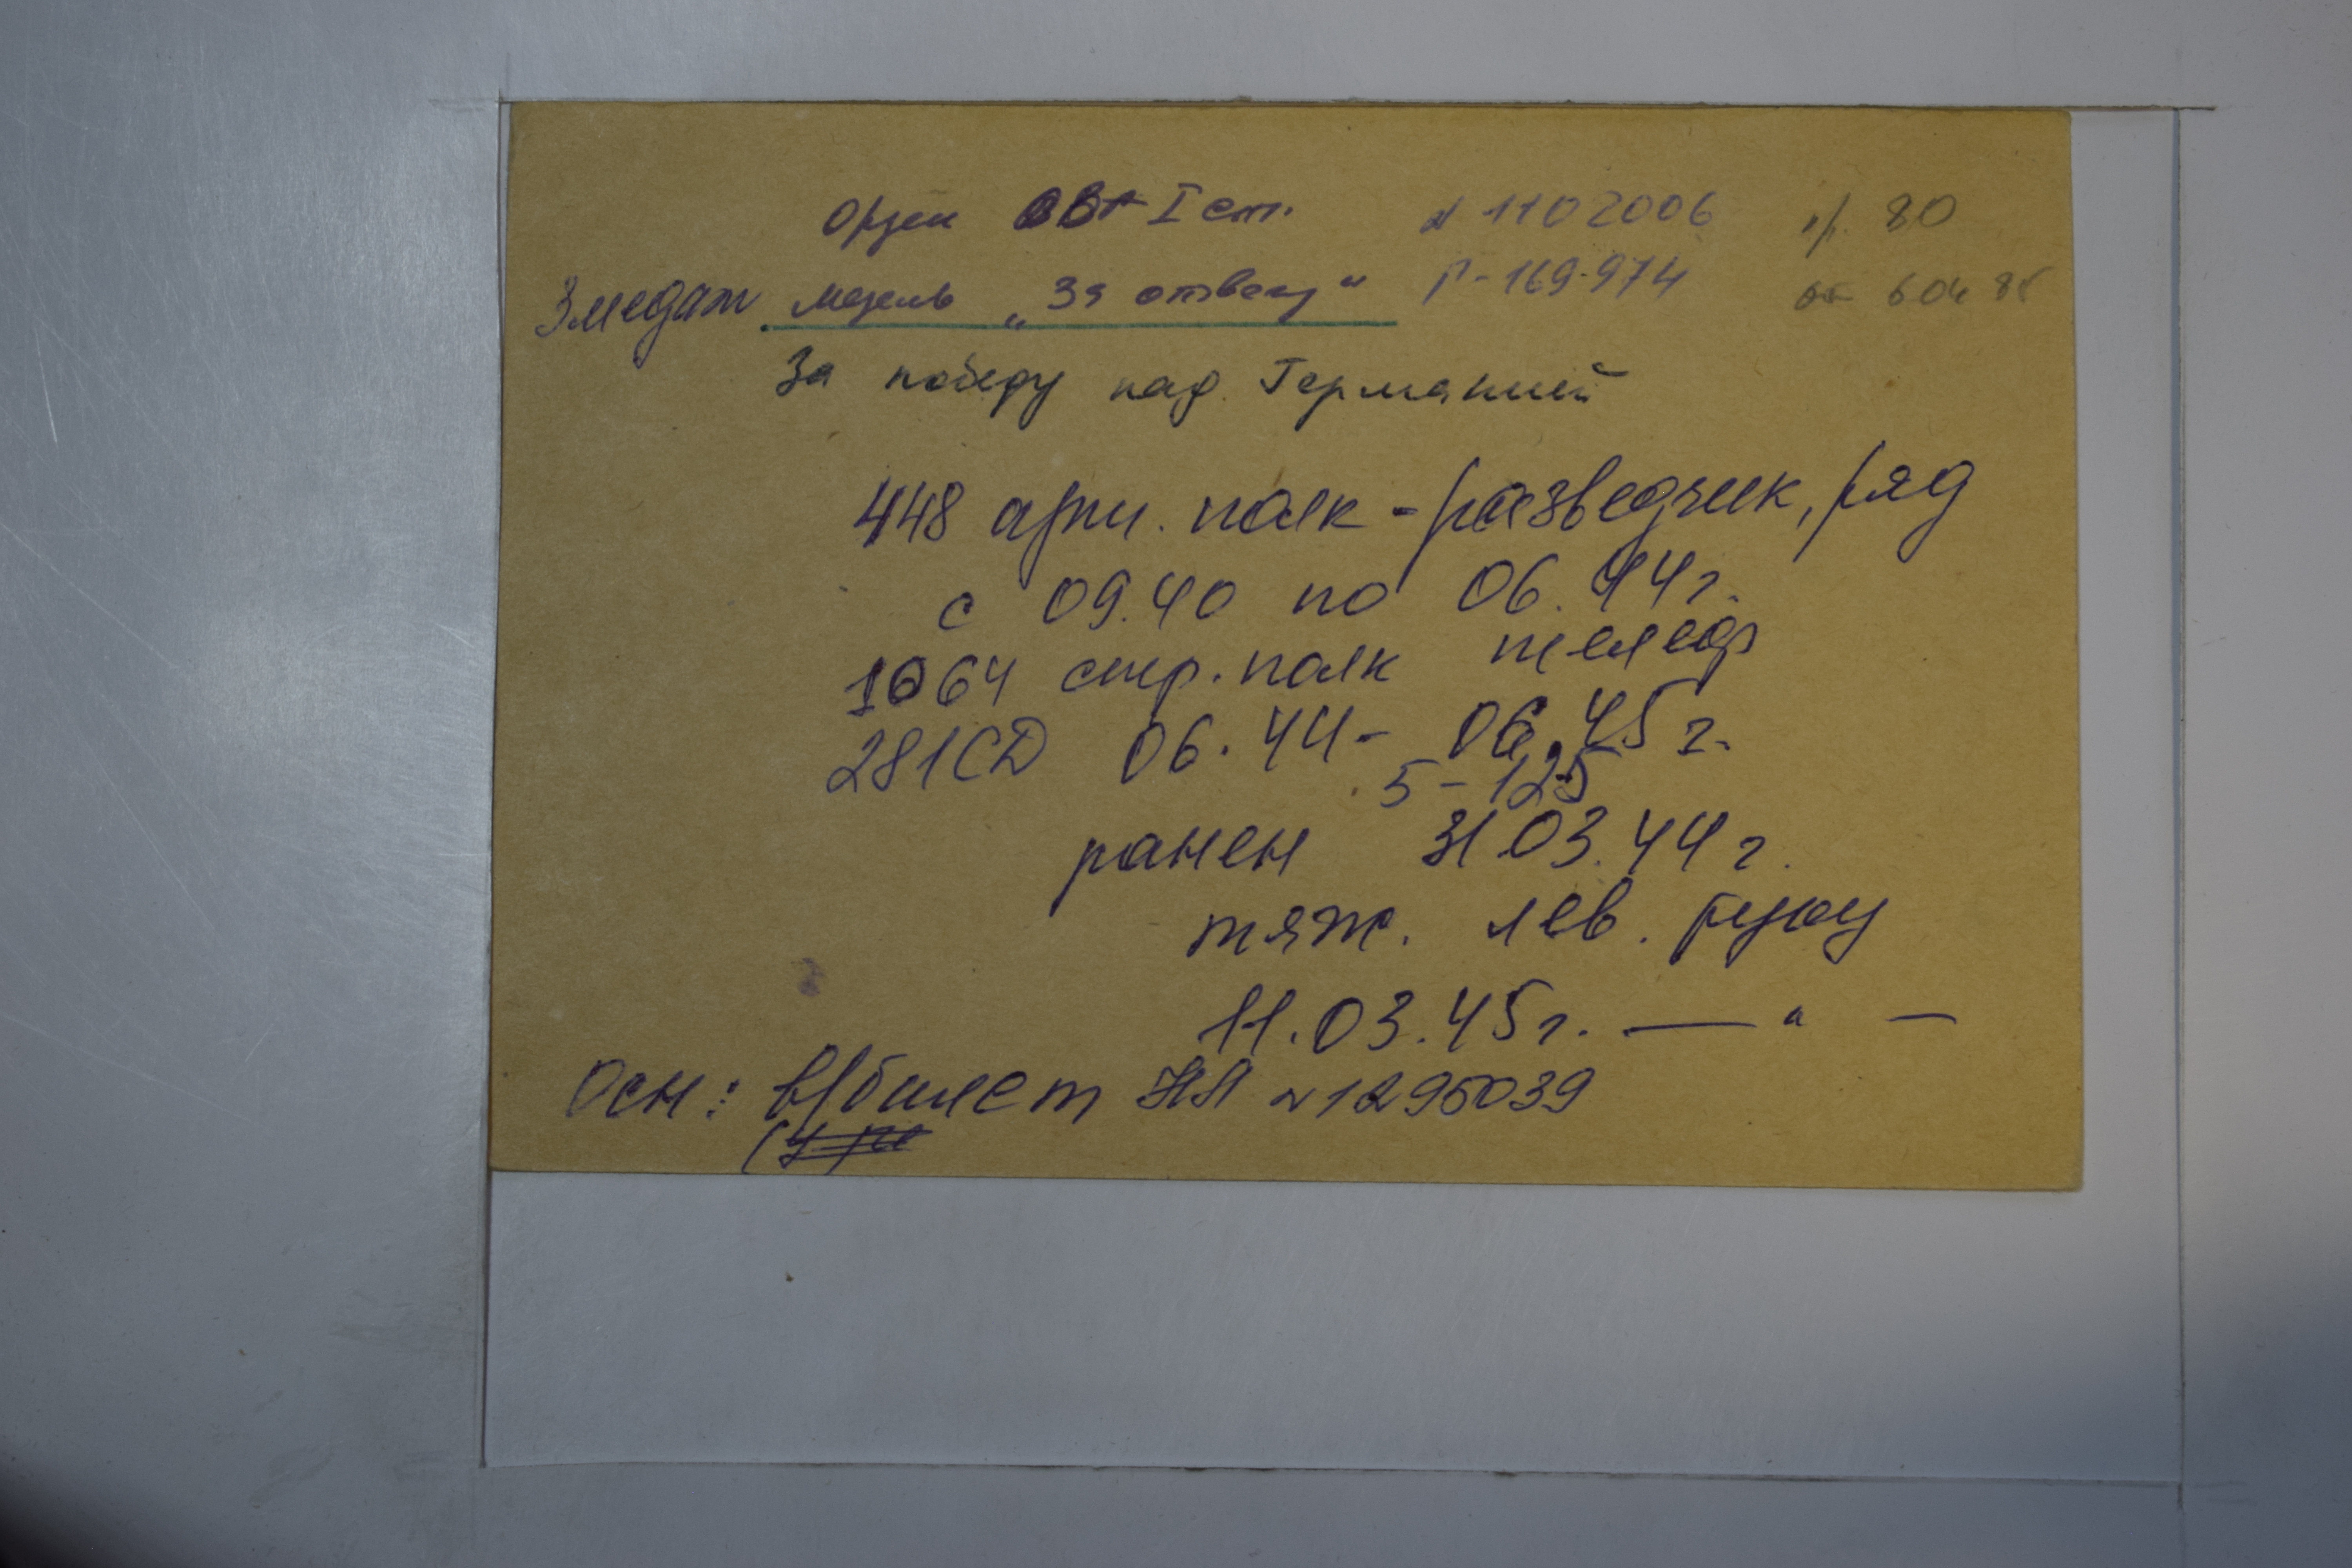 Орден ОВ I ст. № 1102006 н/. 80
3 медат медаль „За отвагу“ Г-169-974 от 6 04 85
За победу над Германией
448 арт. полк - разведчик, ряд
с 09.40 по 06.44г.
1064 стр. полк телеф
281СД 06.44 - 06.45г.
5-125
ранен 31.03.44г.
тяж. лев. руку
11.03.45г. — " —
Осн: в/билет НЛ №1295039